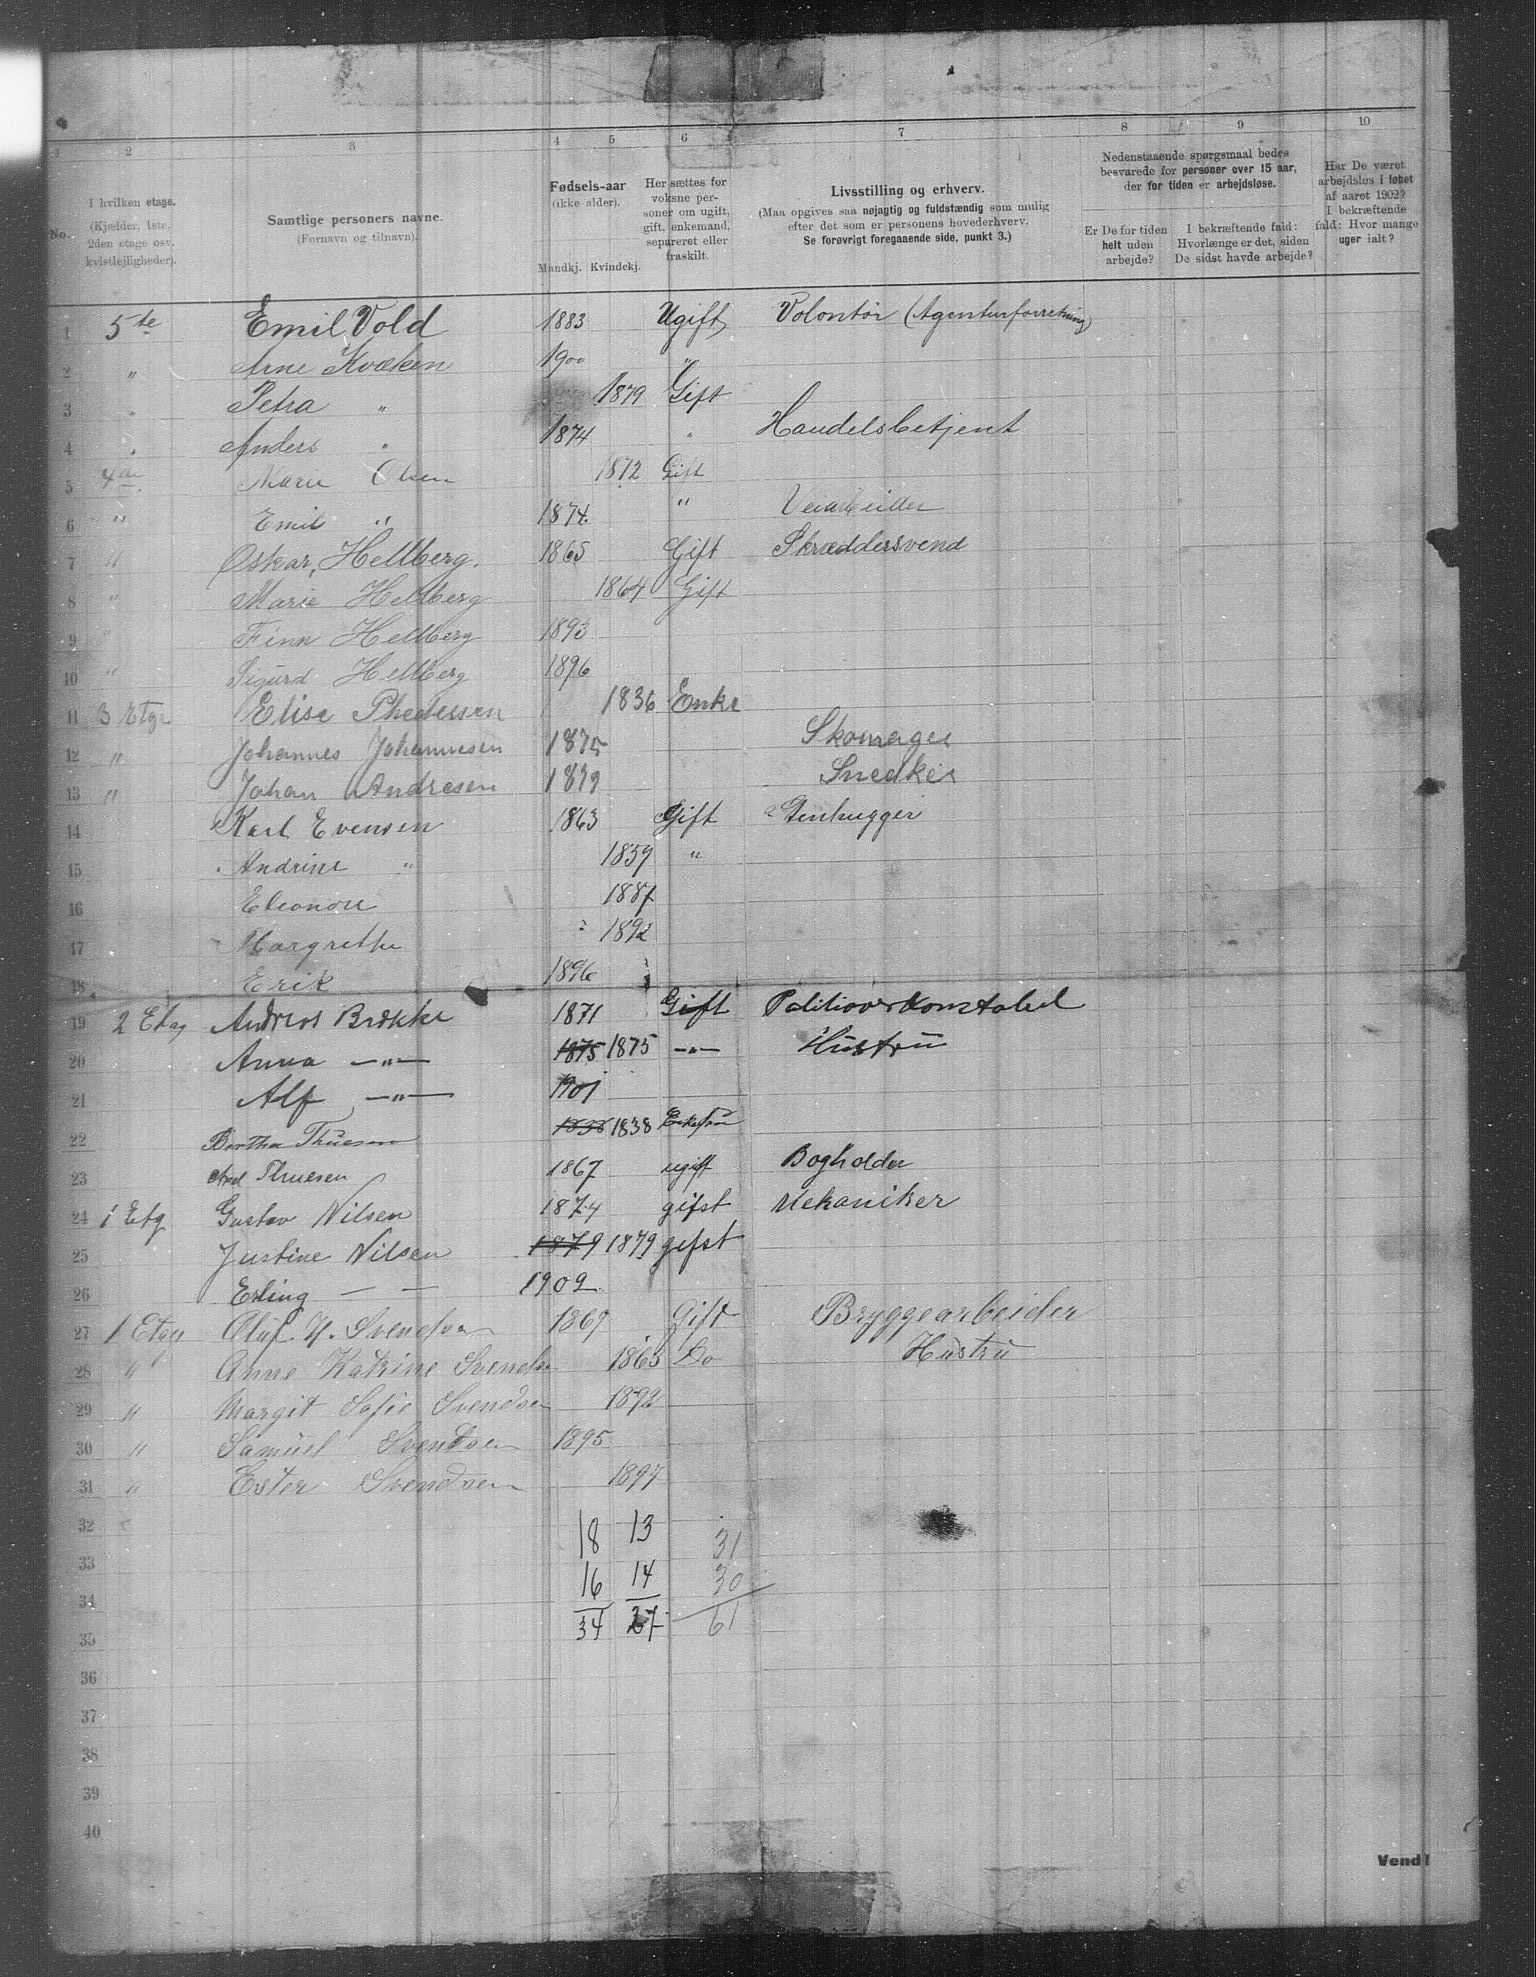 1 2 3 4 5 6 7 8 9 10
No.
I hvilken etage. (Kjælder, 1ste, 2den etage osv. kvistlejligheder).
Samtlige personers navne. (Fornavn og tilnavn).
Fødsels-aar (ikke alder). Mandkj. Kvindekj.
Her sættes for voksne personer om ugift, gift, enkemand, separeret eller fraskilt.
Livsstilling og erhverv. (Maa opgives saa nøjagtig og fuldstændig som mulig efter det som er personens hovederhverv. Se forøvrigt foregaaende side, punkt 3.)
Nedenstaaende spørgsmaal bedes besvarede for personer over 15 aar, der for tiden er arbejdsløse.
Er De for tiden helt uden arbejde?
I bekræftende fald: Hvorlænge er det, siden De sidst havde arbejde?
Har De været arbejdsløs i løbet af aaret 1902? I bekræftende fald: Hvor mange uger ialt?
1 5te Emil Vold 1883 Ugift Volontør (Agenturforretning)
2 " Arne Kvæken 1900 "
3 " Petra " 1879 Gift
4 " Anders " 1874 " Handelsbetjent
5 4de Marie Olsen 1872 Gift
6 " Emil " 1874. " Veiarbeider
7 " Oskar, Hellberg. 1865 Gift Skræddersvend
8 " Marie Hellberg 1864 Gift
9 " Finn Hellberg 1893
10 " Sigurd Hellberg 1896
11 3 Etge Elise 1836 Enke
12 " Johannes Johannesen 1875 Skomager
13 " Johan Andresen 1879 Snedker
14 Karl Evensen 1863 Gift Stenhugger
15 Andrine " 1859 "
16 Eleonore 1887
17 Margrethe 1892
18 Erik 1896
19 2 Etag Andreas Brekke 1871 Gift Politioverkonstabel
20 Anna —"— 1875 1875 —"— Hustru
21 Alf —"— 1901
22 Bertha Thuesen 1838 1838
23 Thuesen 1867 ugift Bogholder
24 1 Etg Gustav Nilsen 1874 gifst Mekaniker
25 Justine Nilsen 1879 1879 gifst
26 Erling — — 1902
27 1 Etag Oluf. H. Svendsen 1869 Gift Bryggearbeider
28 " Anne Katrine Svendsen 1865 Do Hustru
29 " Margit Sofie Svendsen 1892
30 " Samuel Svendsen 1895
31 " Ester Svendsen 1897
32 18 13 31
33 16 14 30
34 34 27 61
35
36
37
38
39
40
Vend!